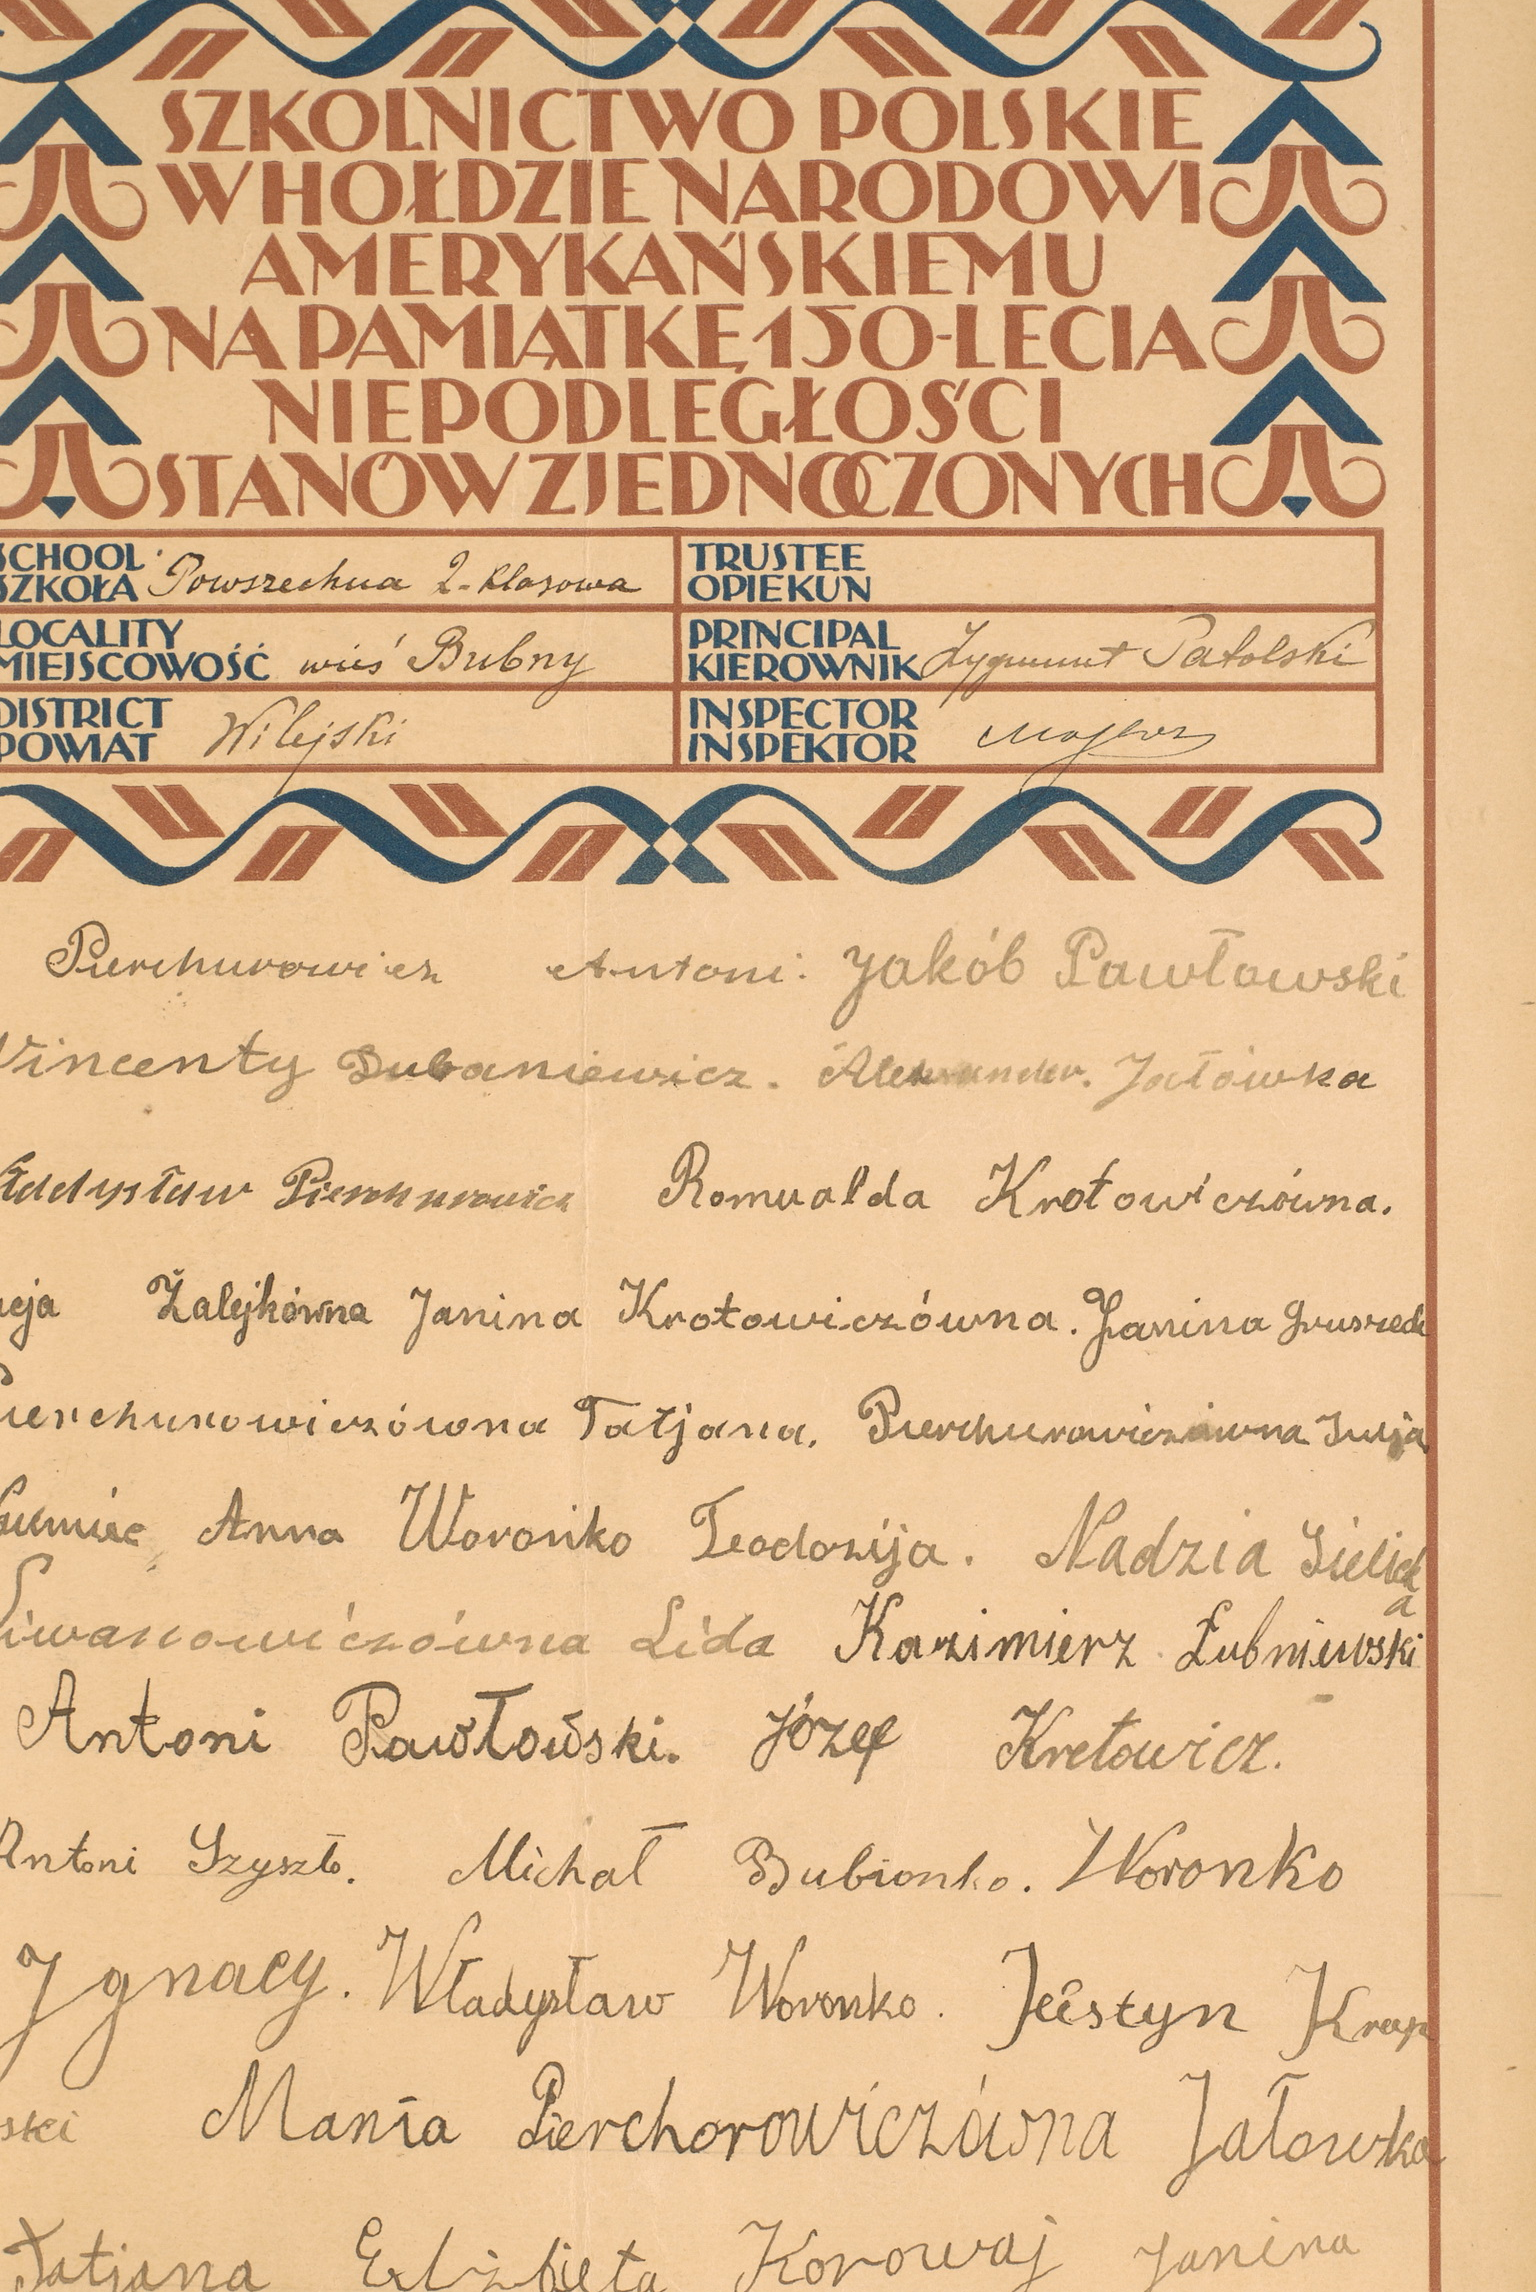 SZKOLNICTWO POLSKIE
W HOŁDZIE NARODOWI
AMERYKAŃSKIEMU
NA PAMIĄTKĘ 150-LECIA
NIEPODLEGŁOŚCI
STANÓW ZJEDNOCZONYCH
SCHOOL
SZKOŁA Powszechna 2-klasowa
TRUSTEE
OPIEKUN
LOCALITY
MIEJSCOWOŚĆ wieś Bubny
PRINCIPAL
KIEROWNIK Zygmunt Patolski
DISTRICT
POWIAT Wilejski
INSPECTOR
INSPEKTOR
Pierchurowicz Antoni. Jakób Pawłowski
Vincenty Dubaniewicz. Alexander. Jałówka
ładysław Pierchurowicz Romualda Krotowiczówna.
Żalejkówna Janina Krotowiczówna. Janina Gruszeck
Pierchurowiczówna Tatjana. Pierchurowiczówna
Anna Woronko Teodozija. Nadzia
Liwanowiczówna Lida Kazimierz Łubniewski
Antoni Pawłowski. Józef Kretowicz.
Antoni Szyszło. Michał Bubionko. Woronko
Jgnacy. Władysław Woronko. Jeistyn
ski Mania Pierchorowiczówna Jałowka
Tatjana Elżbieta Korowaj Janina